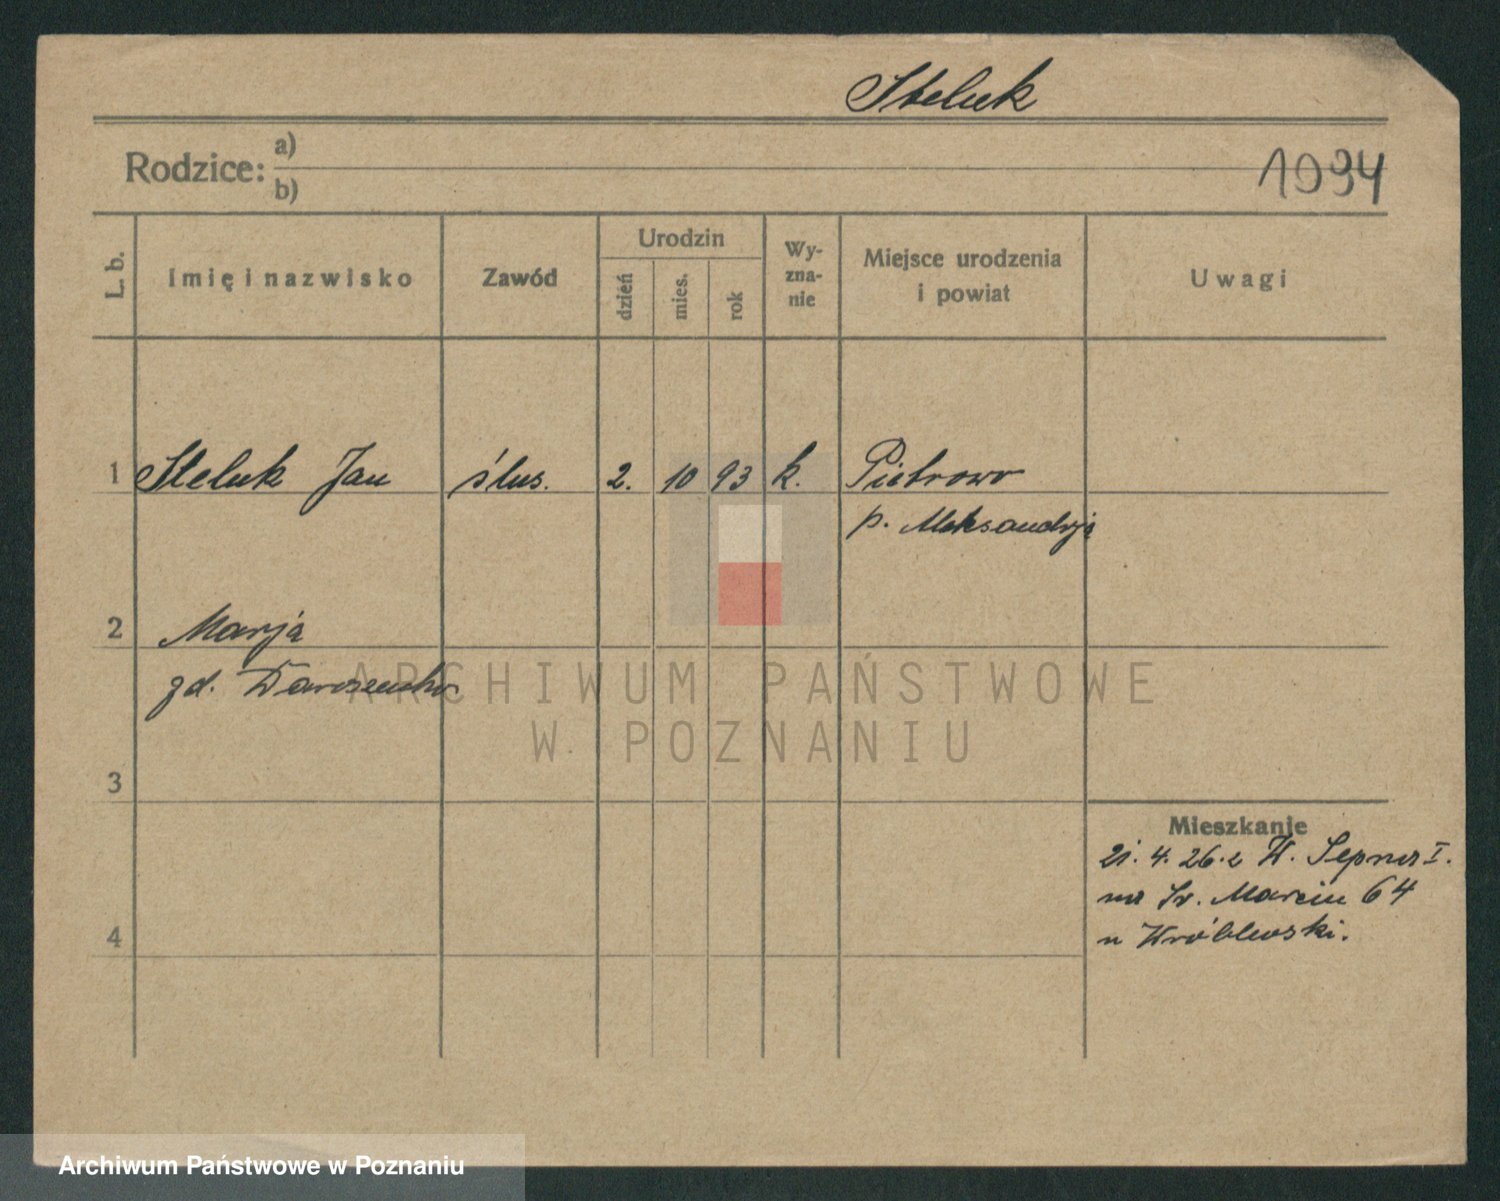 Steluk
Rodzice: a)
b)
1934
L. b.
Imię i nazwisko
Zawód
Urodzin
dzień
mies.
rok
Wy-
zna-
nie
Miejsce urodzenia
i powiat
Uwagi
1 Steluk Jan ślus. 2. 10 93 k. Pietrowo
p. Aleksandrja
2 Marja
zd.
3
Mieszkanie
21. 4. 26. z W. I.
na Św. Marcin 64
u Wróblewski.
4
ARCHIWUM PAŃSTWOWE
W POZNANIU
Archiwum Państwowe w Poznaniu